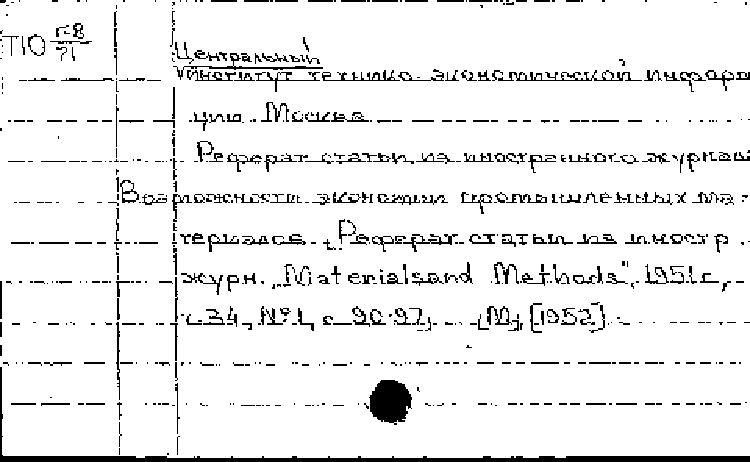 Т10 Г-8
71
Центральный
Институт технико-экономической информа
ции. Москва
Реферат статьи из иностранного журнала
Возможности экономии промышленных ма-
териалов. Реферат статьи из иностр.
журн. "Materials and Methods", 1951г.,
т.34, №1, с 90-97, М, [1952].